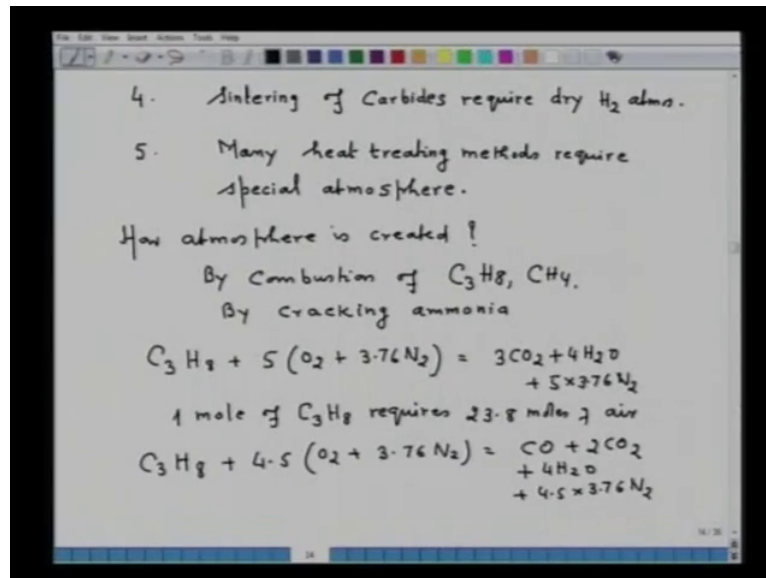 File Edit View Insert Actions Tools Help
4. Sintering of Carbides require dry H2 atms.
5. Many heat treating methods require
special atmosphere.
How atmosphere is created ?
By Combustion of C3H8, CH4.
By cracking ammonia
C3H8 + 5 (O2 + 3.76 N2) = 3CO2 + 4H2O
+ 5×3.76 N2
1 mole of C3H8 requires 23.8 moles of air
C3H8 + 4.5 (O2 + 3.76 N2) = CO + 2CO2
+ 4H2O
+ 4.5×3.76 N2